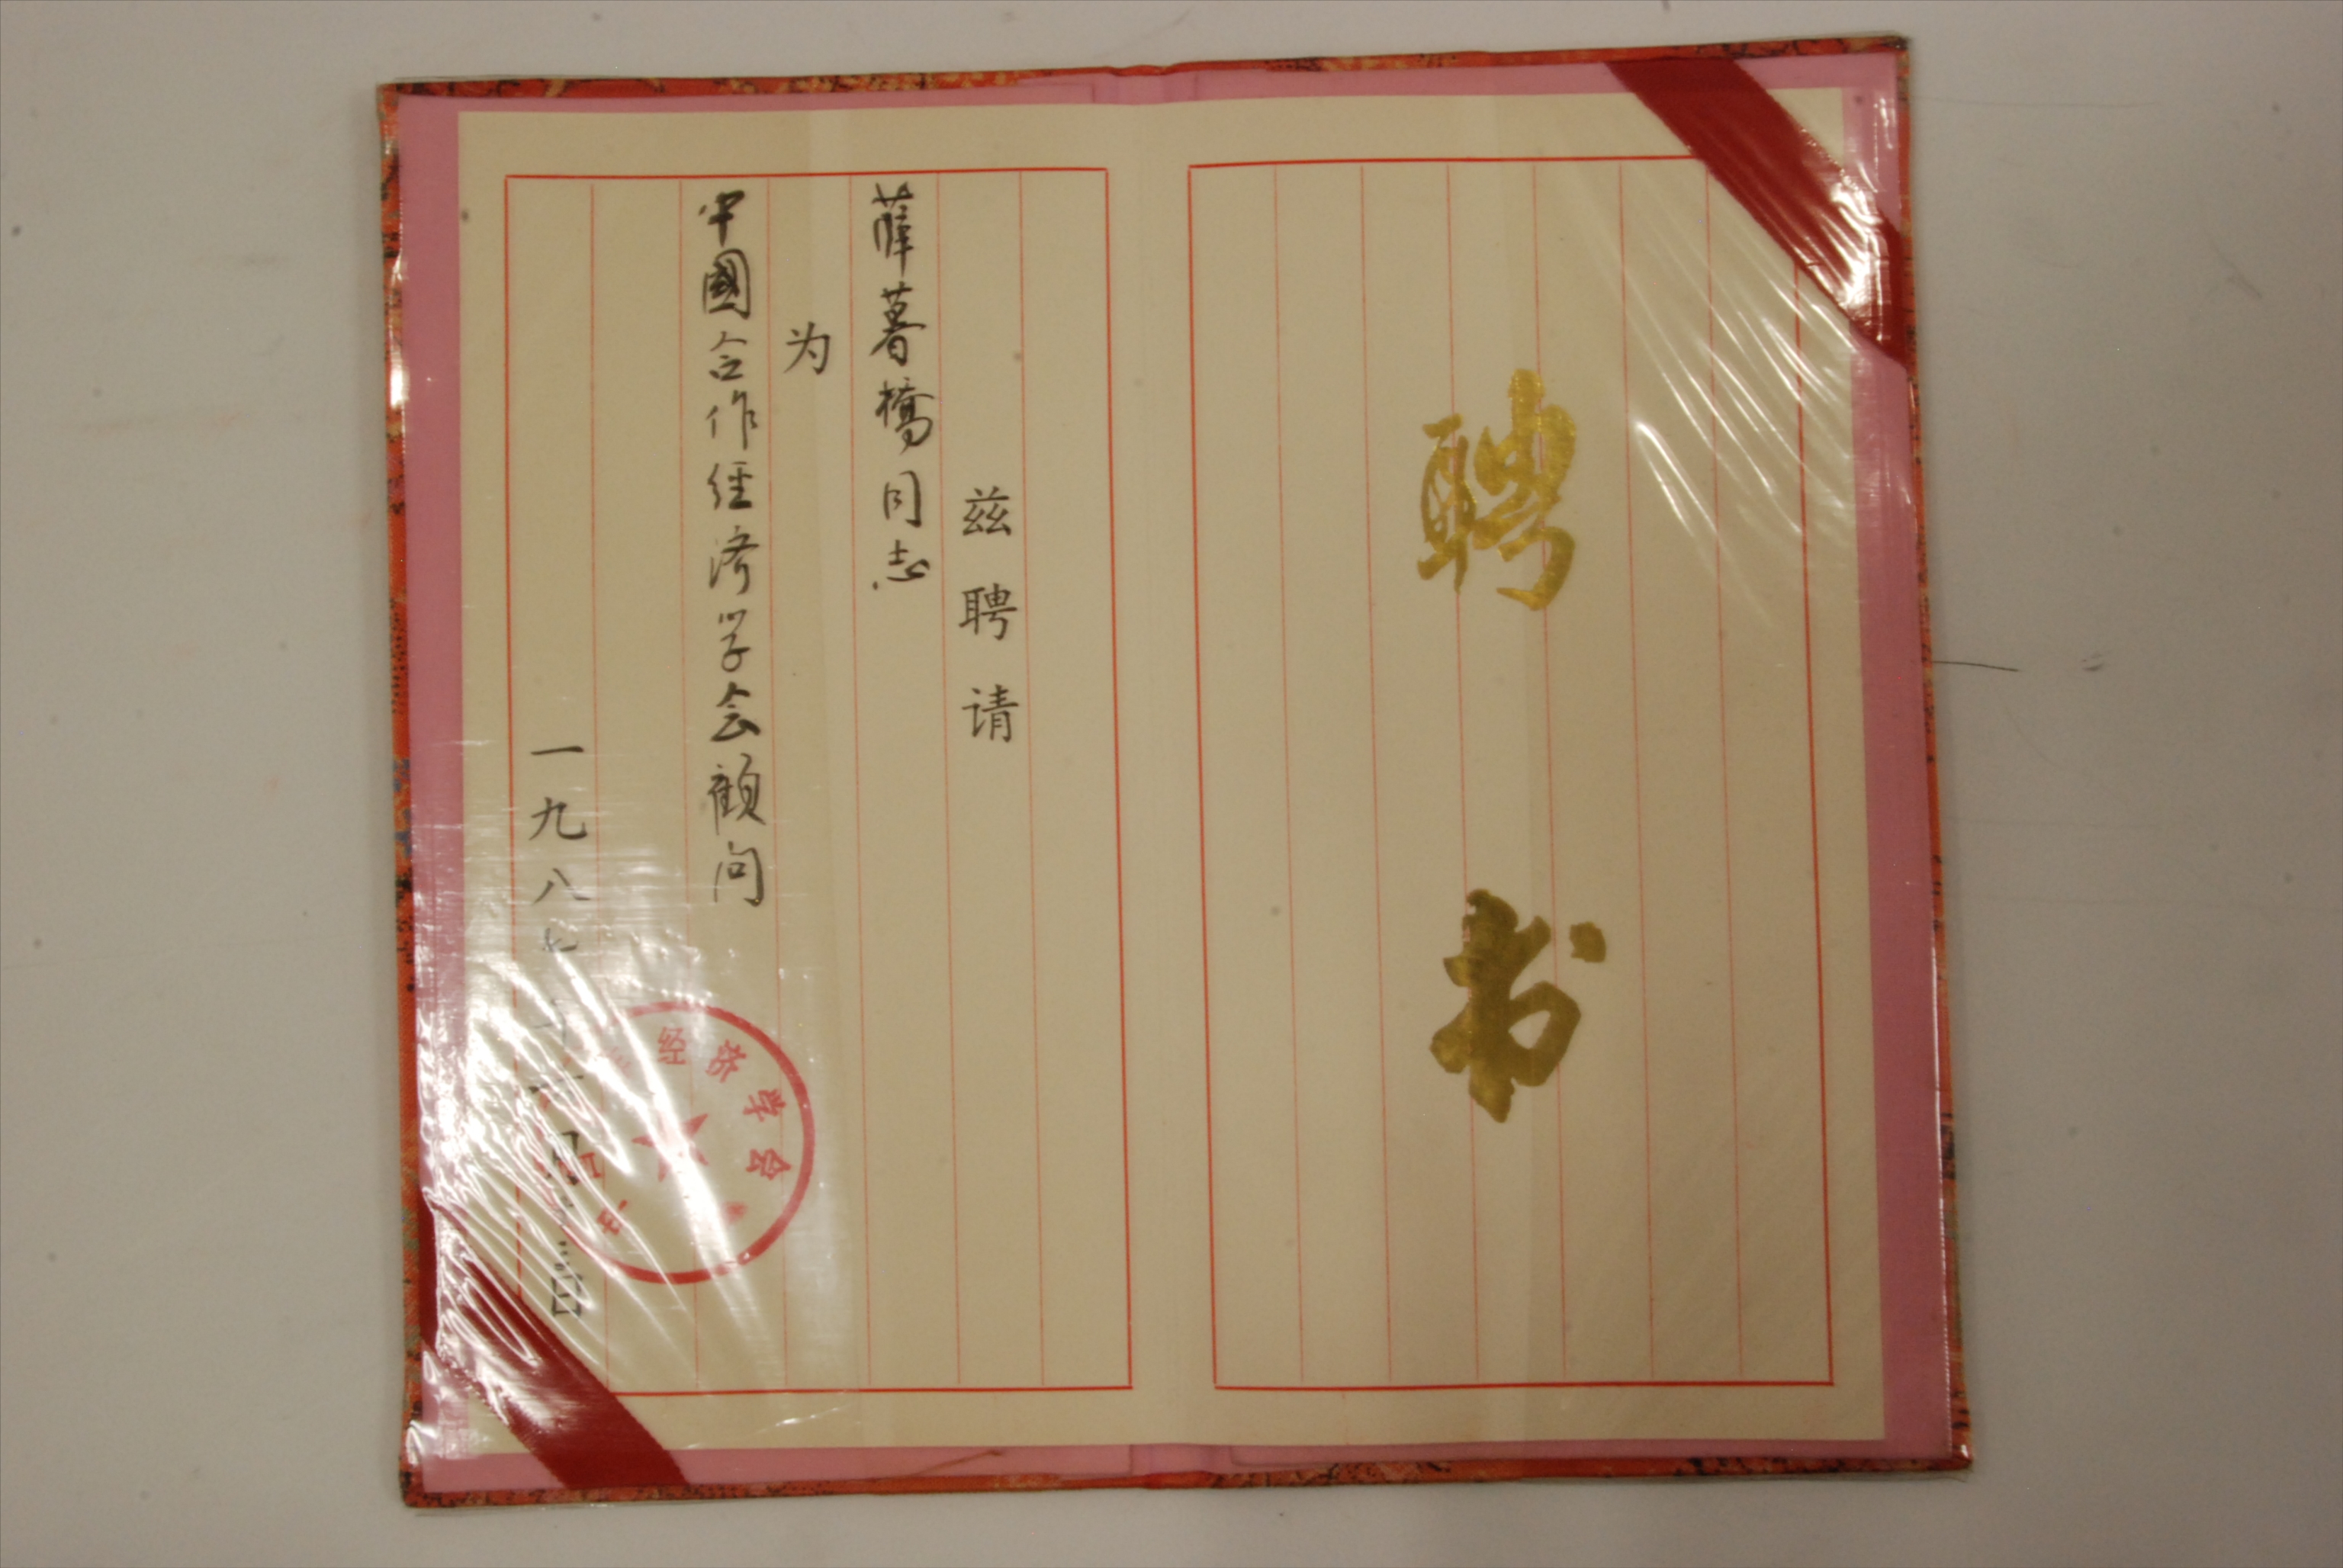 聘书
兹聘请
薛暮橋同志
为
中國合作经济学会顧问
一九八七
经济学会